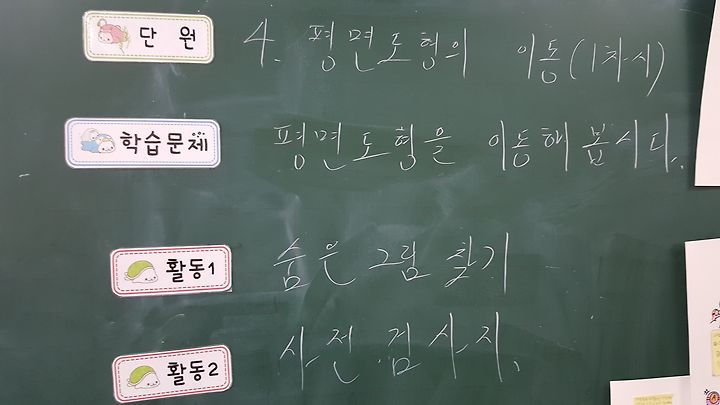 단원 4. 평면도형의 이동(1차시)
학습문제 평면도형을 이동해 봅시다.
활동1 숨은그림 찾기
활동2 사전 검사지.